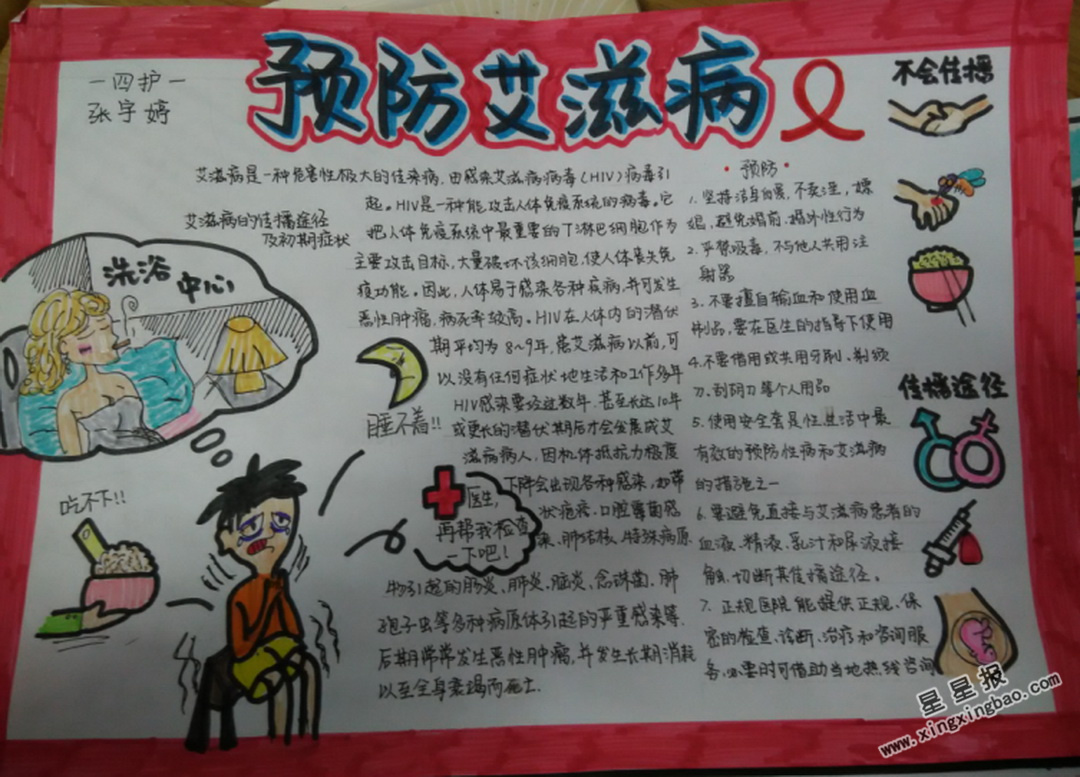 一四护一
张宇婷
预防艾滋病
艾滋病是一种危害性极大的传染病,由感染艾滋病病毒(HIV)病毒引
起。HIV是一种能攻击人体免疫系统的病毒。它
把人体免疫系统中最重要的T淋巴细胞作为
主要攻击目标,大量破坏该细胞,使人体丧失免
疫功能。因此,人体易于感染各种疾病,并可发生
恶性肿瘤,病死率较高。HIV在人体内的潜伏
期平均为8~9年,患艾滋病以前,可
以没有任何症状地生活和工作多年
HIV感染要经过数年、甚至长达10年
或更长的潜伏期后才会发展成艾
滋病病人,因机体抵抗力极度
下降会出现各种感染,如带
状疱疹、口腔霉菌感
染、肺结核、特殊病原
物引起的肠炎、肺炎、脑炎、念珠菌、肺
孢子虫等多种病原体引起的严重感染等.
后期常常发生恶性肿瘤,并发生长期消耗
以至全身衰竭而死亡.
艾滋病的传播途径
及初期症状
洗浴
中心
睡不着!!
吃不下!!
医生,
再帮我检查
一下吧!
·预防·
1.坚持洁身自爱,不卖淫,嫖
娼,避免婚前、婚外性行为
2.严禁吸毒,不与他人共用注
射器
3.不要擅自输血和使用血
制品,要在医生的指导下使用
4.不要借用或共用牙刷、剃须
刀、刮胡刀等个人用品
5.使用安全套是性生活中最
有效的预防性病和艾滋病
的措施之一
6.要避免直接与艾滋病患者的
血液、精液、乳汁和尿液接
触,切断其传播途径。
7.正规医院能提供正规、保
密的检查、诊断、治疗和咨询服
务,必要时可借助当地热线咨询
不会传播
传播途径
星星报
www.xingxingbao.com